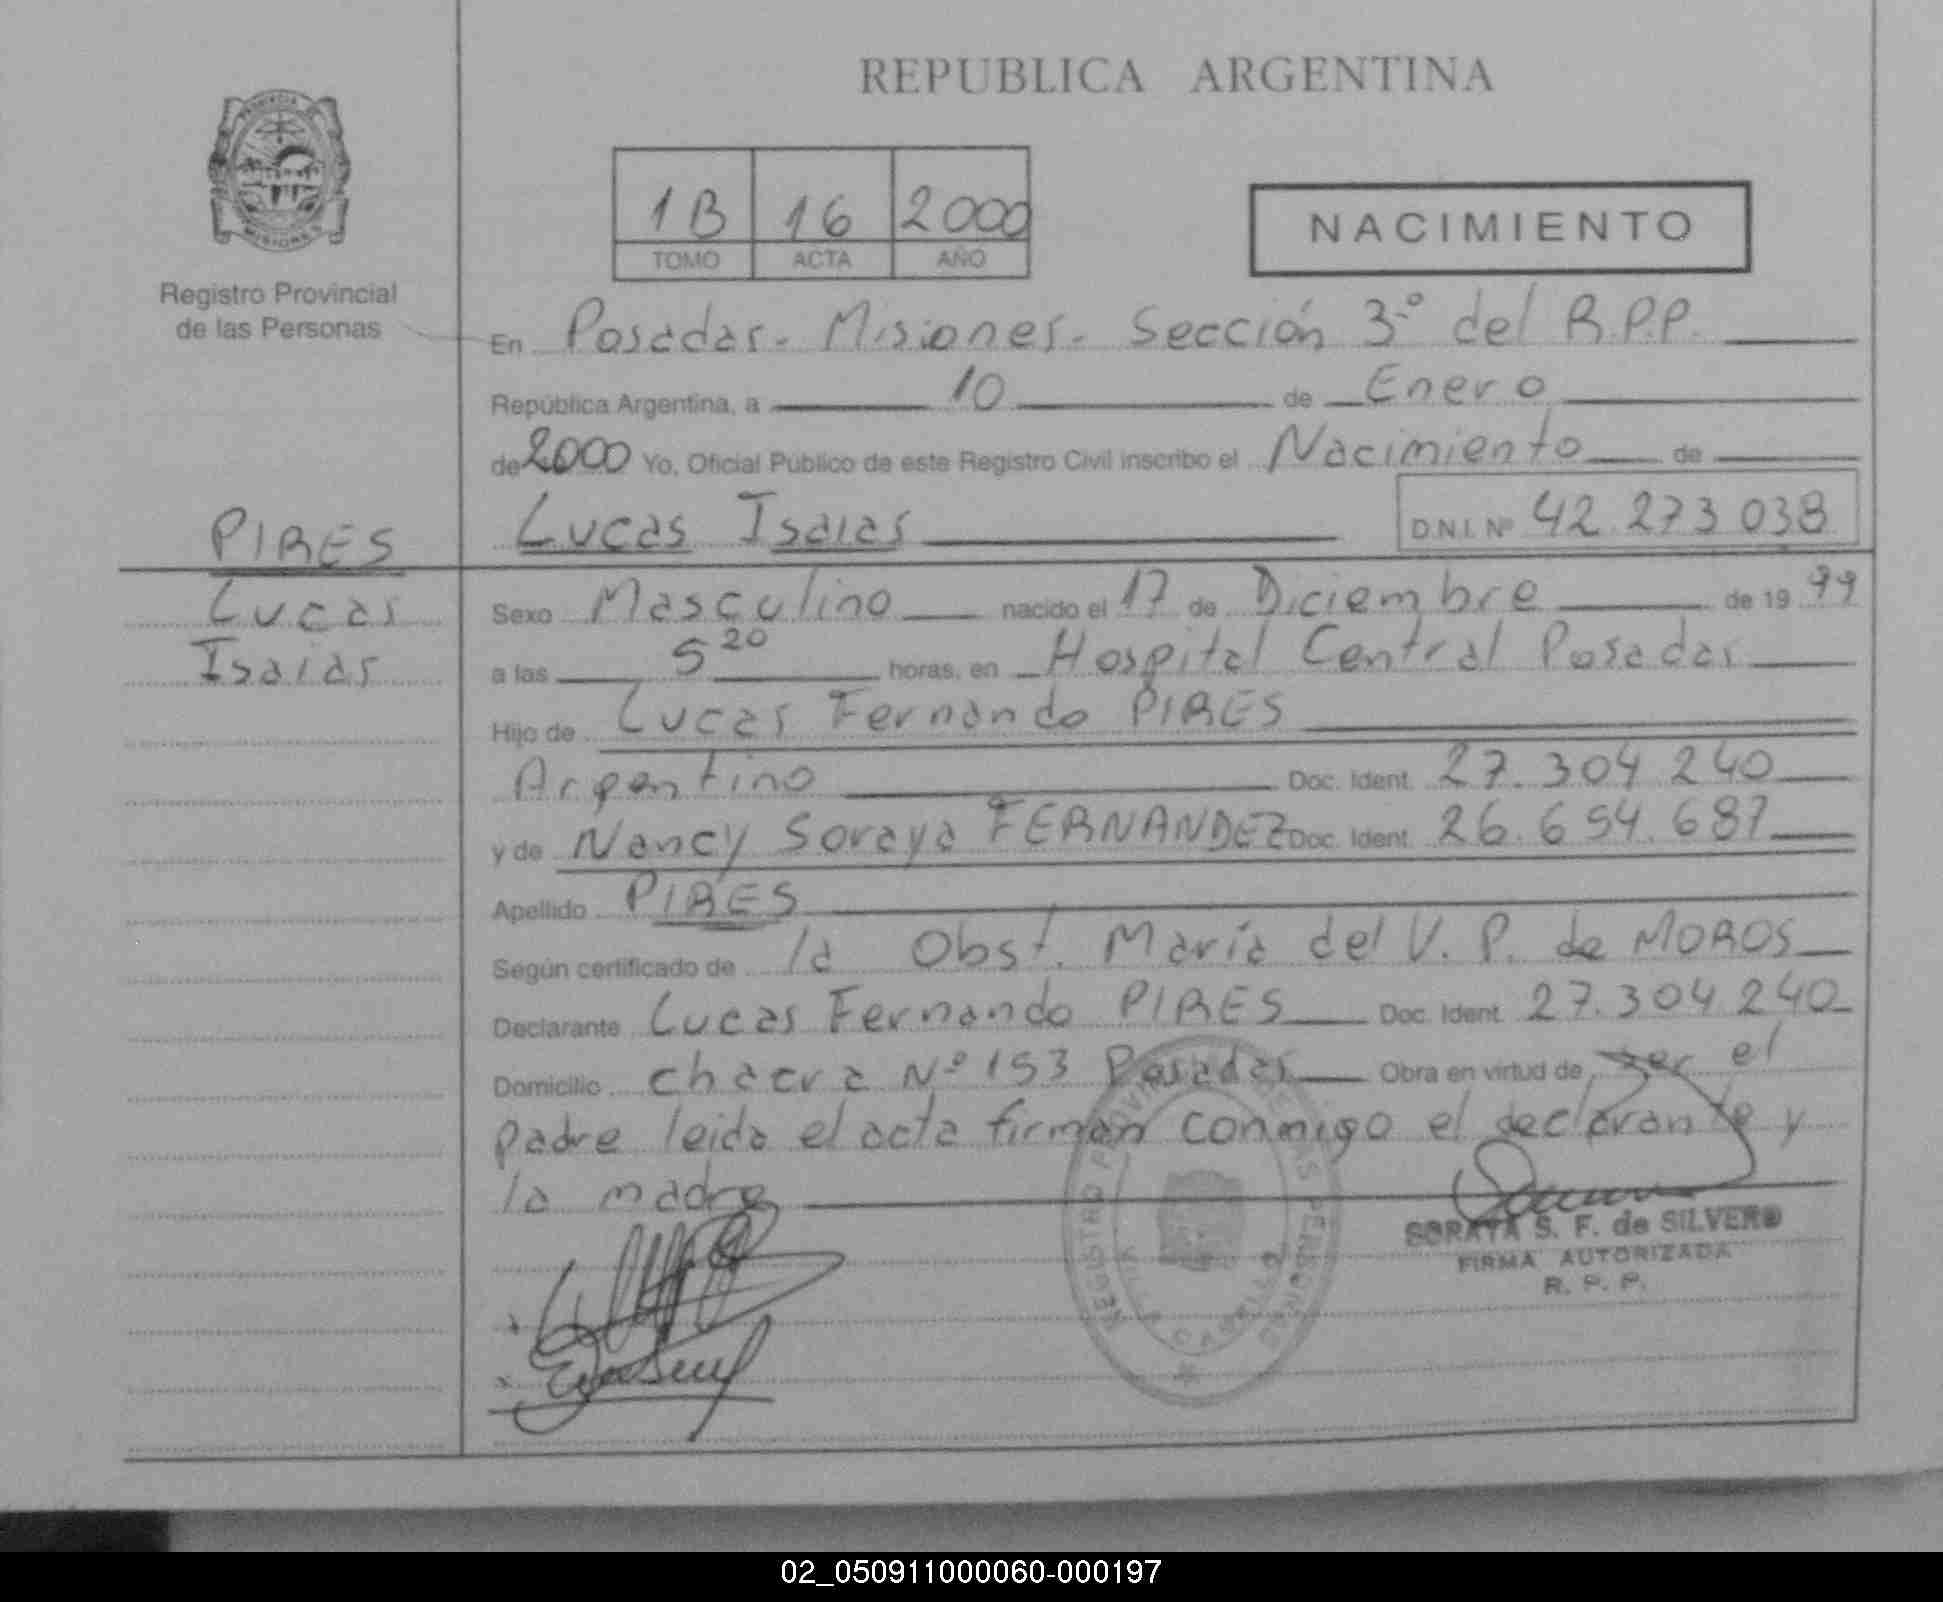 REPUBLICA ARGENTINA
PROVINCIA DE
MISIONES
Registro Provincial
de las Personas
1B 16 2000
TOMO ACTA AÑO
NACIMIENTO
En Posadas - Misiones - Sección 3º del R.P.P.
República Argentina, a 10 de Enero
de 2000 Yo, Oficial Público de este Registro Civil inscribo el Nacimiento de
Lucas Isaias D.N.I. Nº 42.273.038
PIRES
Lucas
Isaias
Sexo Masculino nacido el 17 de Diciembre de 1999
a las 5 20 horas, en Hospital Central Posadas
Hijo de Lucas Fernando PIRES
Argentino Doc. Ident. 27.304.240
y de Nancy Soraya FERNANDEZ Doc. Ident. 26.654.687
Apellido PIRES
Según certificado de la Obst. María del V. P. de MOROS
Declarante Lucas Fernando PIRES Doc. Ident. 27.304.240
Domicilio chacra Nº 153 Posadas Obra en virtud de ser el
padre leida el acta firman conmigo el declarante y
la madre
REGISTRO PROVINCIAL DE LAS PERSONAS
SORAYA S. F. de SILVERO
FIRMA AUTORIZADA
R. P. P.
02_050911000060-000197